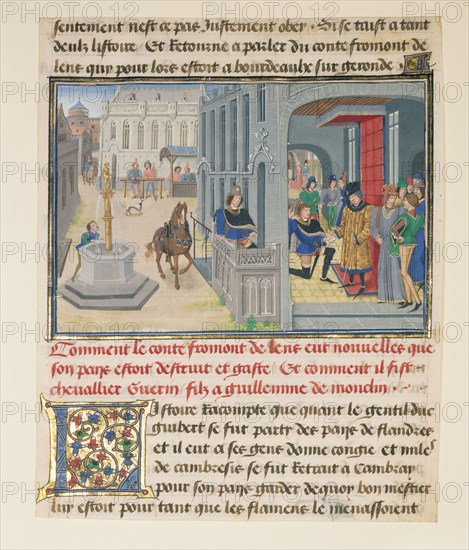 sentement nest ce pas Justement obey . Si se taist a tant
deulx listoire . Et Retourne a parler du conte fromont de
lens quy pour lors estoit a bourdeaulx sur geronde .
Comment le conte fromont de lens eut nouuelles que
son pays estoit destruit et gaste . Et comment il fist
cheuallier Guerin filz a guillemme de monclin .
Listoire Racompte que quant le gentil duc
guibert se fut party des pays de flandres
et il eut a ses gens donne congie et mile
de cambresie se fut Retrait a Cambray
pour son pays garder de quoy bon mestier
luy estoit pour tant que les flamens le menassoient